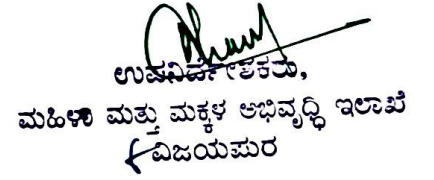 ಉಪನಿರ್ದೇಶಕರು,
ಮಹಿಳಾ ಮತ್ತು ಮಕ್ಕಳ ಅಭಿವೃದ್ಧಿ ಇಲಾಖೆ
ವಿಜಯಪುರ